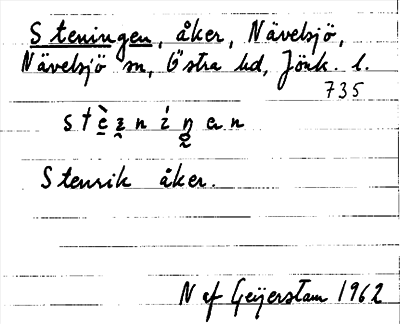 Steningen, åker, Nävelsjö,
Nävelsjö sn, Östra hd, Jönk. l.
735
Stenrik åker.
N af Geijerstam 1962